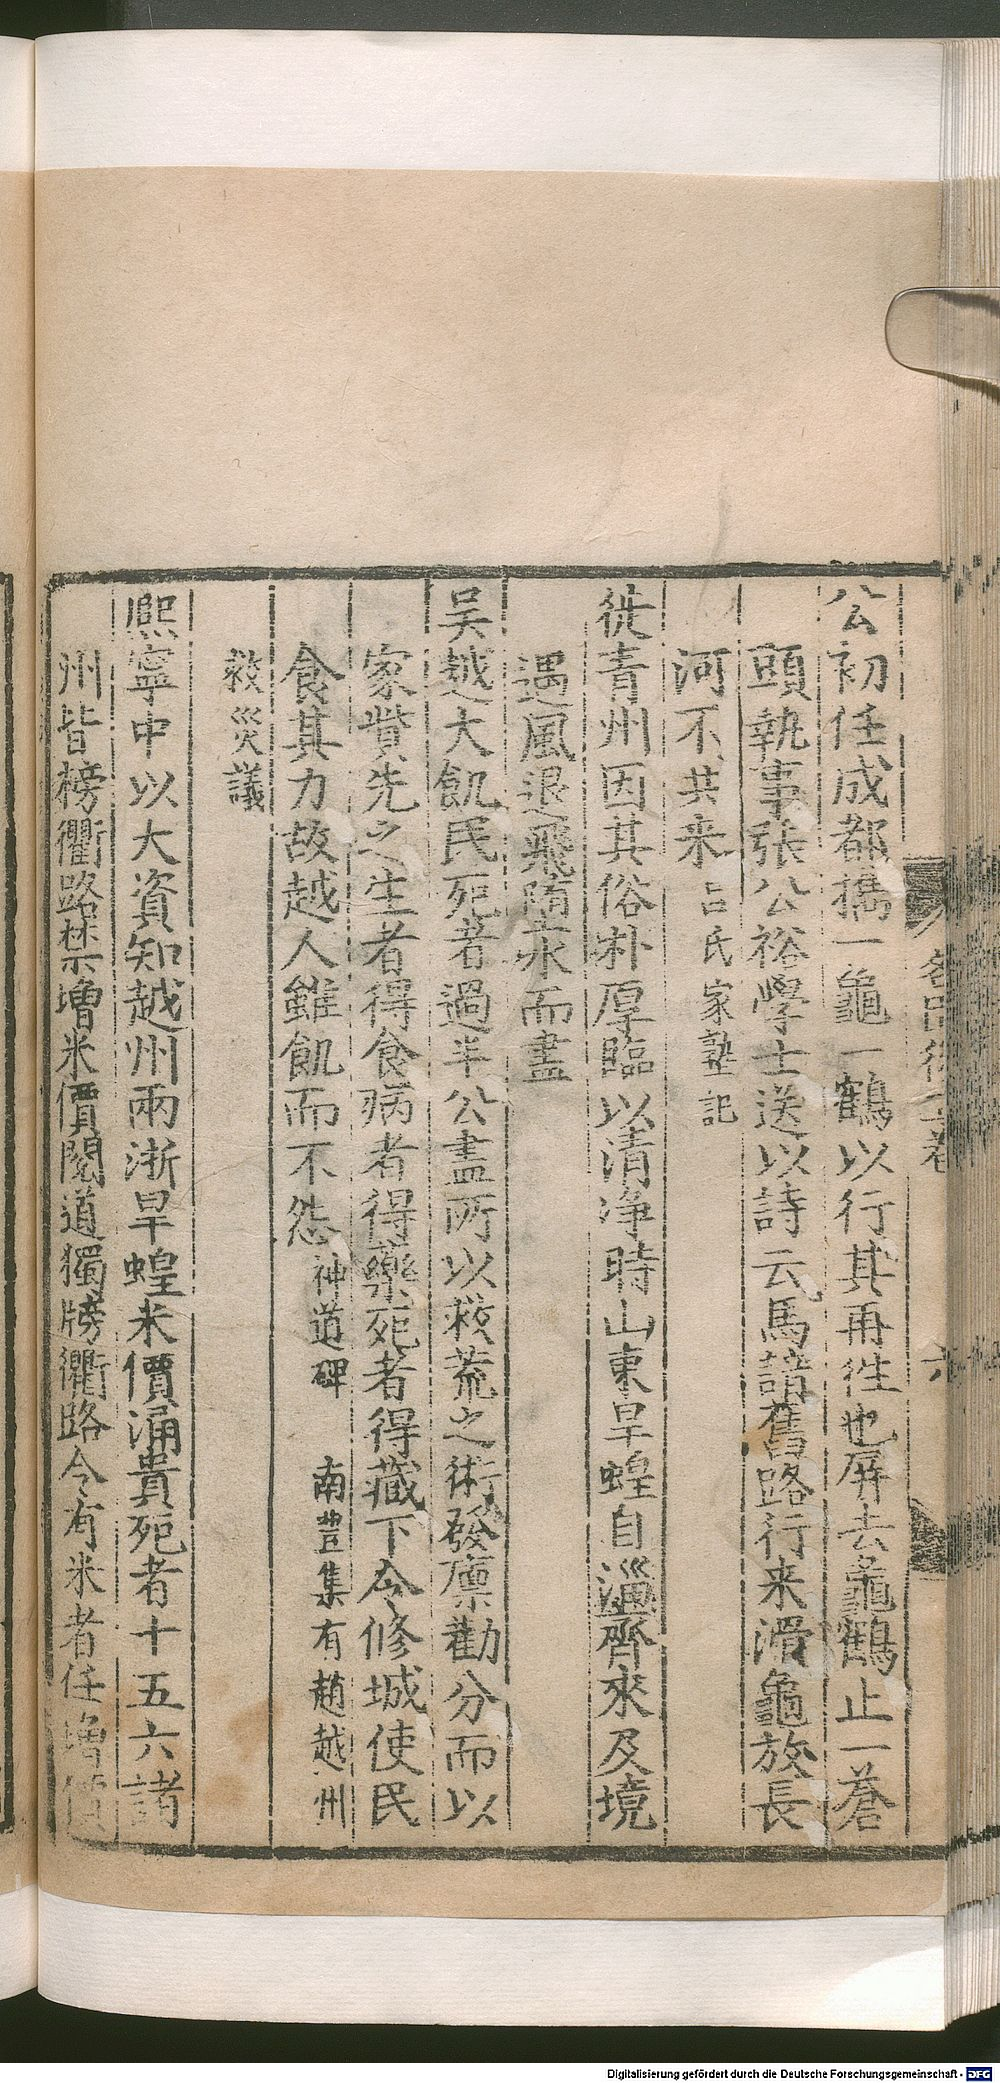 公初任成都擕一龜一鶴以行其再徃也屏去龜鶴止一蒼
頭執事張公裕學士送以詩云馬諳舊路行来滑龜放長
河不共来呂氏家塾記
徙青州因其俗朴厚臨以清浄時山東旱蝗自淄齊來及境
遇風退飛墮水而盡
吴越大飢民死者過半公盡所以救荒之術發廪勸分而以
家貲先之生者得食病者得藥死者得藏下令修城使民
食其力故越人雖飢而不怨神道碑　南豐集有趙越州
救災議
熈寧中以大資知越州兩浙旱蝗米價涌貴死者十五六諸
州皆榜衢路禁増米價閱道獨牓衢路令有米者任増價
Digitalisierung gefördert durch die Deutsche Forschungsgemeinschaft - DFG